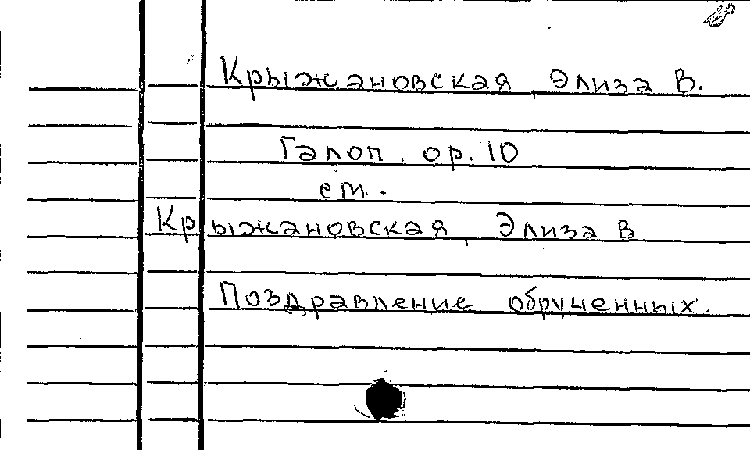 Крыжановская Элиза В.
Галоп. ор. 10
см.
Крыжановская, Элиза В
Поздравление обрученных.